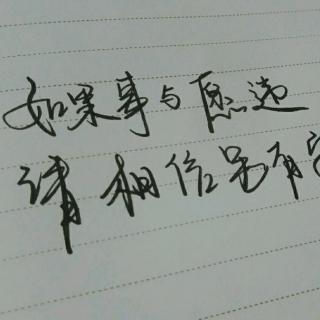 如果事与愿违
请相信另有